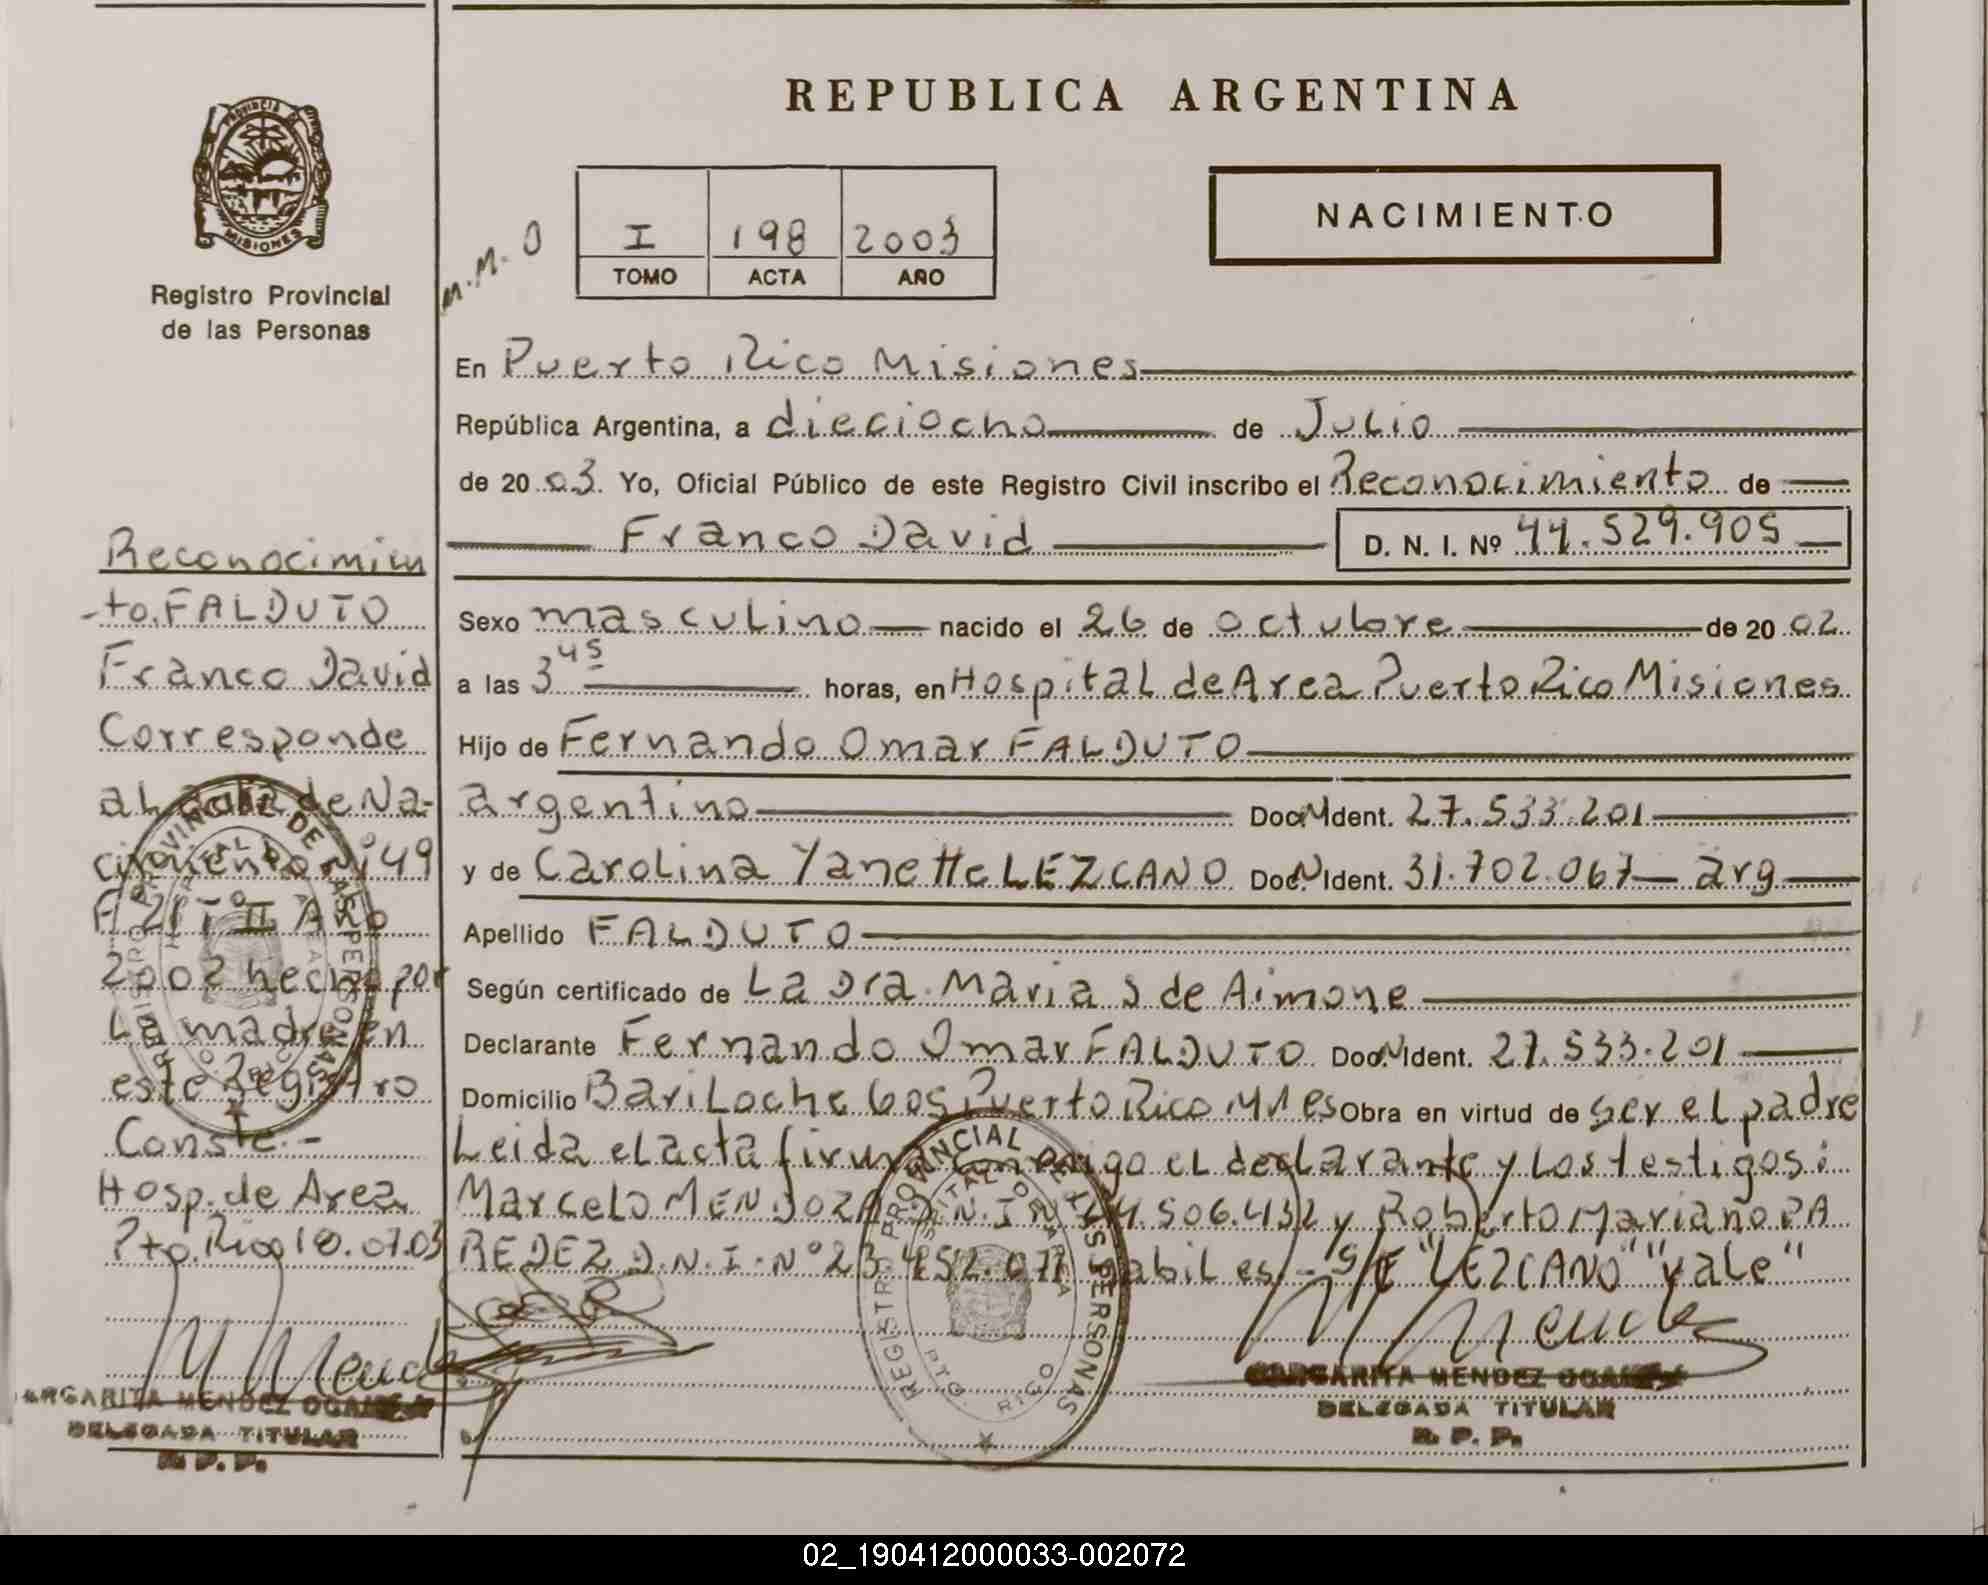 REPUBLICA ARGENTINA
PROVINCIA DE
MISIONES
Registro Provincial
de las Personas
NACIMIENTO
M.M. O
I 198 2003
TOMO ACTA AÑO
En Puerto Rico Misiones
República Argentina, a dieciocho de Julio
de 20 03. Yo, Oficial Público de este Registro Civil inscribo el Reconocimiento de
Franco David D. N. I. Nº 44.529.905
Sexo masculino nacido el 26 de octubre de 20 02
a las 3 45 horas, en Hospital de Area Puerto Rico Misiones
Hijo de Fernando Omar FALDUTO
argentino Doc. N Ident. 27.533.201
y de Carolina Yanette LEZCANO Doc. N Ident. 31.702.067 — arg
Apellido FALDUTO
Según certificado de La Dra. Maria S de Aimone
Declarante Fernando Omar FALDUTO Doc. N Ident. 27.533.201
Domicilio Bariloche 605 Puerto Rico Mnes Obra en virtud de ser el padre
Leida el acta firman conmigo el declarante y los testigos:
Marcelo MENDOZA D.N.I.N 24.506.432 y Roberto Mariano PA
REDEZ D.N.I.Nº 23.452.077 habiles - S/E "LEZCANO" "vale"
MARGARITA MENDEZ
DELEGADA TITULAR
R. P. P.
Reconocimien
-to. FALDUTO
Franco David
Corresponde
al acta de Na-
cimiento nº 149
F 21 Tº II Año
2002 hecho por
La madre en
este Registro
Conste.-
Hosp. de Area
Pto. Rico 18.07.03
ARGARITA MENDEZ
DELEGADA TITULAR
R. P. P.
REGISTRO PROVINCIAL DE LAS PERSONAS
HOSPITAL DE AREA
PTO. RICO
REGISTRO PROVINCIAL DE LAS PERSONAS
HOSPITAL DE AREA
PTO. RICO
02_190412000033-002072